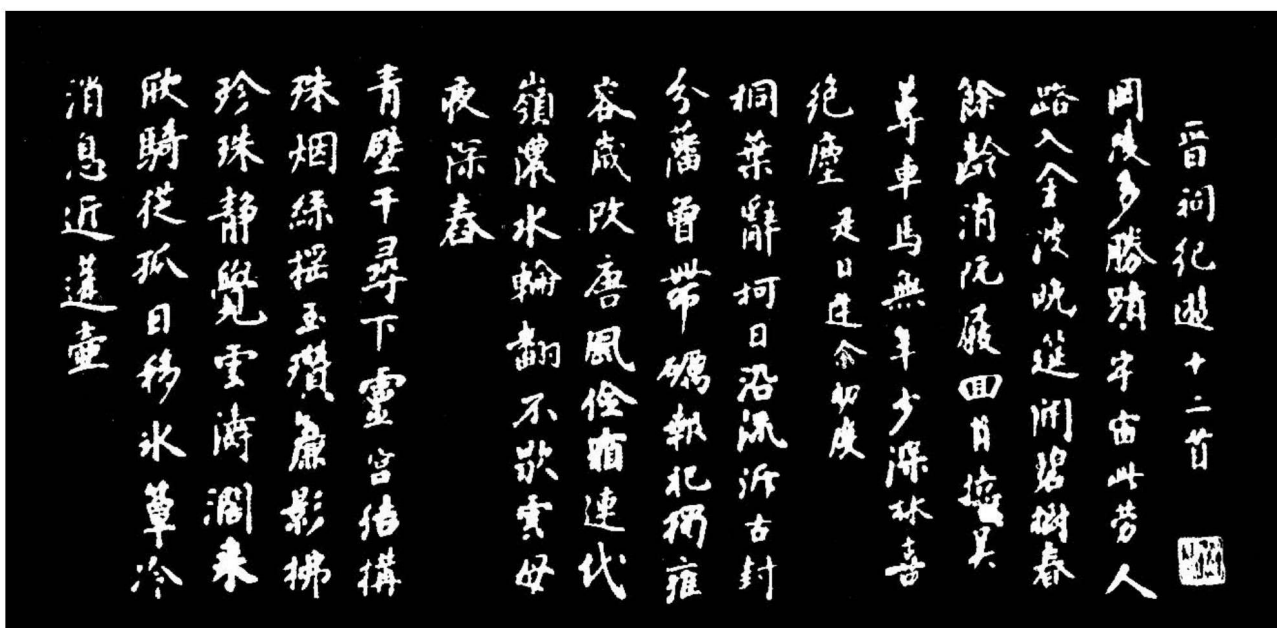 晋祠纪遊十二首
岡陵多勝蹟宇宙此劳人
路入金波晚筵開碧樹春
餘齡消阮屐回首擅吴
蓴車馬無年少深林喜
绝塵 是日逢余初度
桐葉辭柯日沿流泝古封
分藩曾帶礪報祀獨雍
容歲改唐風儉猶連代
嶺濃水輪翻不歇雲母
夜深舂
青壁千尋下靈宫结構
殊烟絲摇玉瓚簾影拂
珍珠静覺雲濤濶来
欣騎從孤日移水簟冷
消息近蓬壺